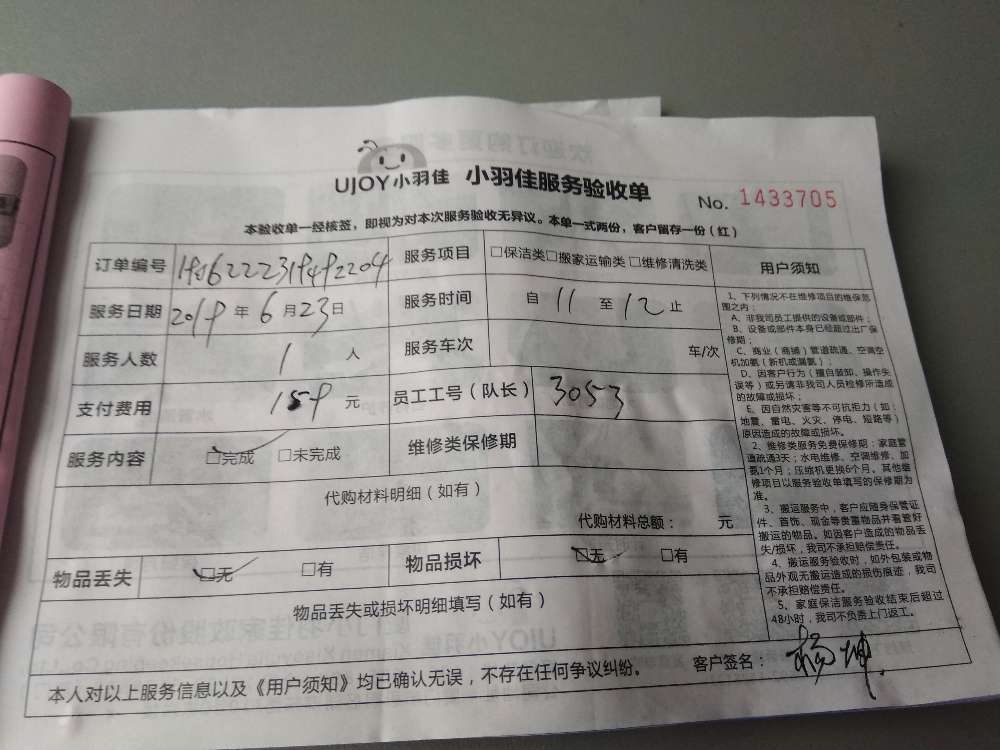 UJOY小羽佳 小羽佳服务验收单
No. 1433705
本验收单一经核签，即视为对本次服务验收无异议。本单一式两份，客户留存一份（红）
订单编号 服务项目 □保洁类□搬家运输类 □维修清洗类
服务日期 2019年6月23日 服务时间 自 11 至 12 止
服务人数 1 人 服务车次 车/次
支付费用 159 元 员工工号（队长） 3053
服务内容 □完成 □未完成 维修类保修期
代购材料明细（如有）
代购材料总额： 元
物品丢失 □无 □有 物品损坏 □无 □有
物品丢失或损坏明细填写（如有）
本人对以上服务信息以及《用户须知》均已确认无误，不存在任何争议纠纷。 客户签名：杨坤
用户须知
1、下列情况不在维修项目的维保范
围之内：
A、非我司员工提供的设备或部件；
B、设备或部件本身已经超过出厂保
修期；
C、商业（商铺）管道疏通、空调空
机加氨（新机或漏氨）；
D、因客户行为（擅自装卸、操作失
误等）或另请非我司人员检修所造成
的故障或损坏；
E、因自然灾害等不可抗拒力（如：
地震、雷电、火灾、停电、短路等）
原因造成的故障或损坏。
2、维修类服务免费保修期：家庭管
道疏通3天；水电维修、空调维修、加
氨1个月；压缩机更换6个月。其他维
修项目以服务验收单填写的保修期为
准。
3、搬运服务中，客户应随身保管证
件、首饰、现金等贵重物品并看管好
搬运的物品。如因客户造成的物品丢
失/损坏，我司不承担赔偿责任。
4、搬运服务验收时，如外包装或物
品外观无搬运造成的损伤痕迹，我司
不承担赔偿责任。
5、家庭保洁服务验收结束后超过
48小时，我司不负责上门返工。